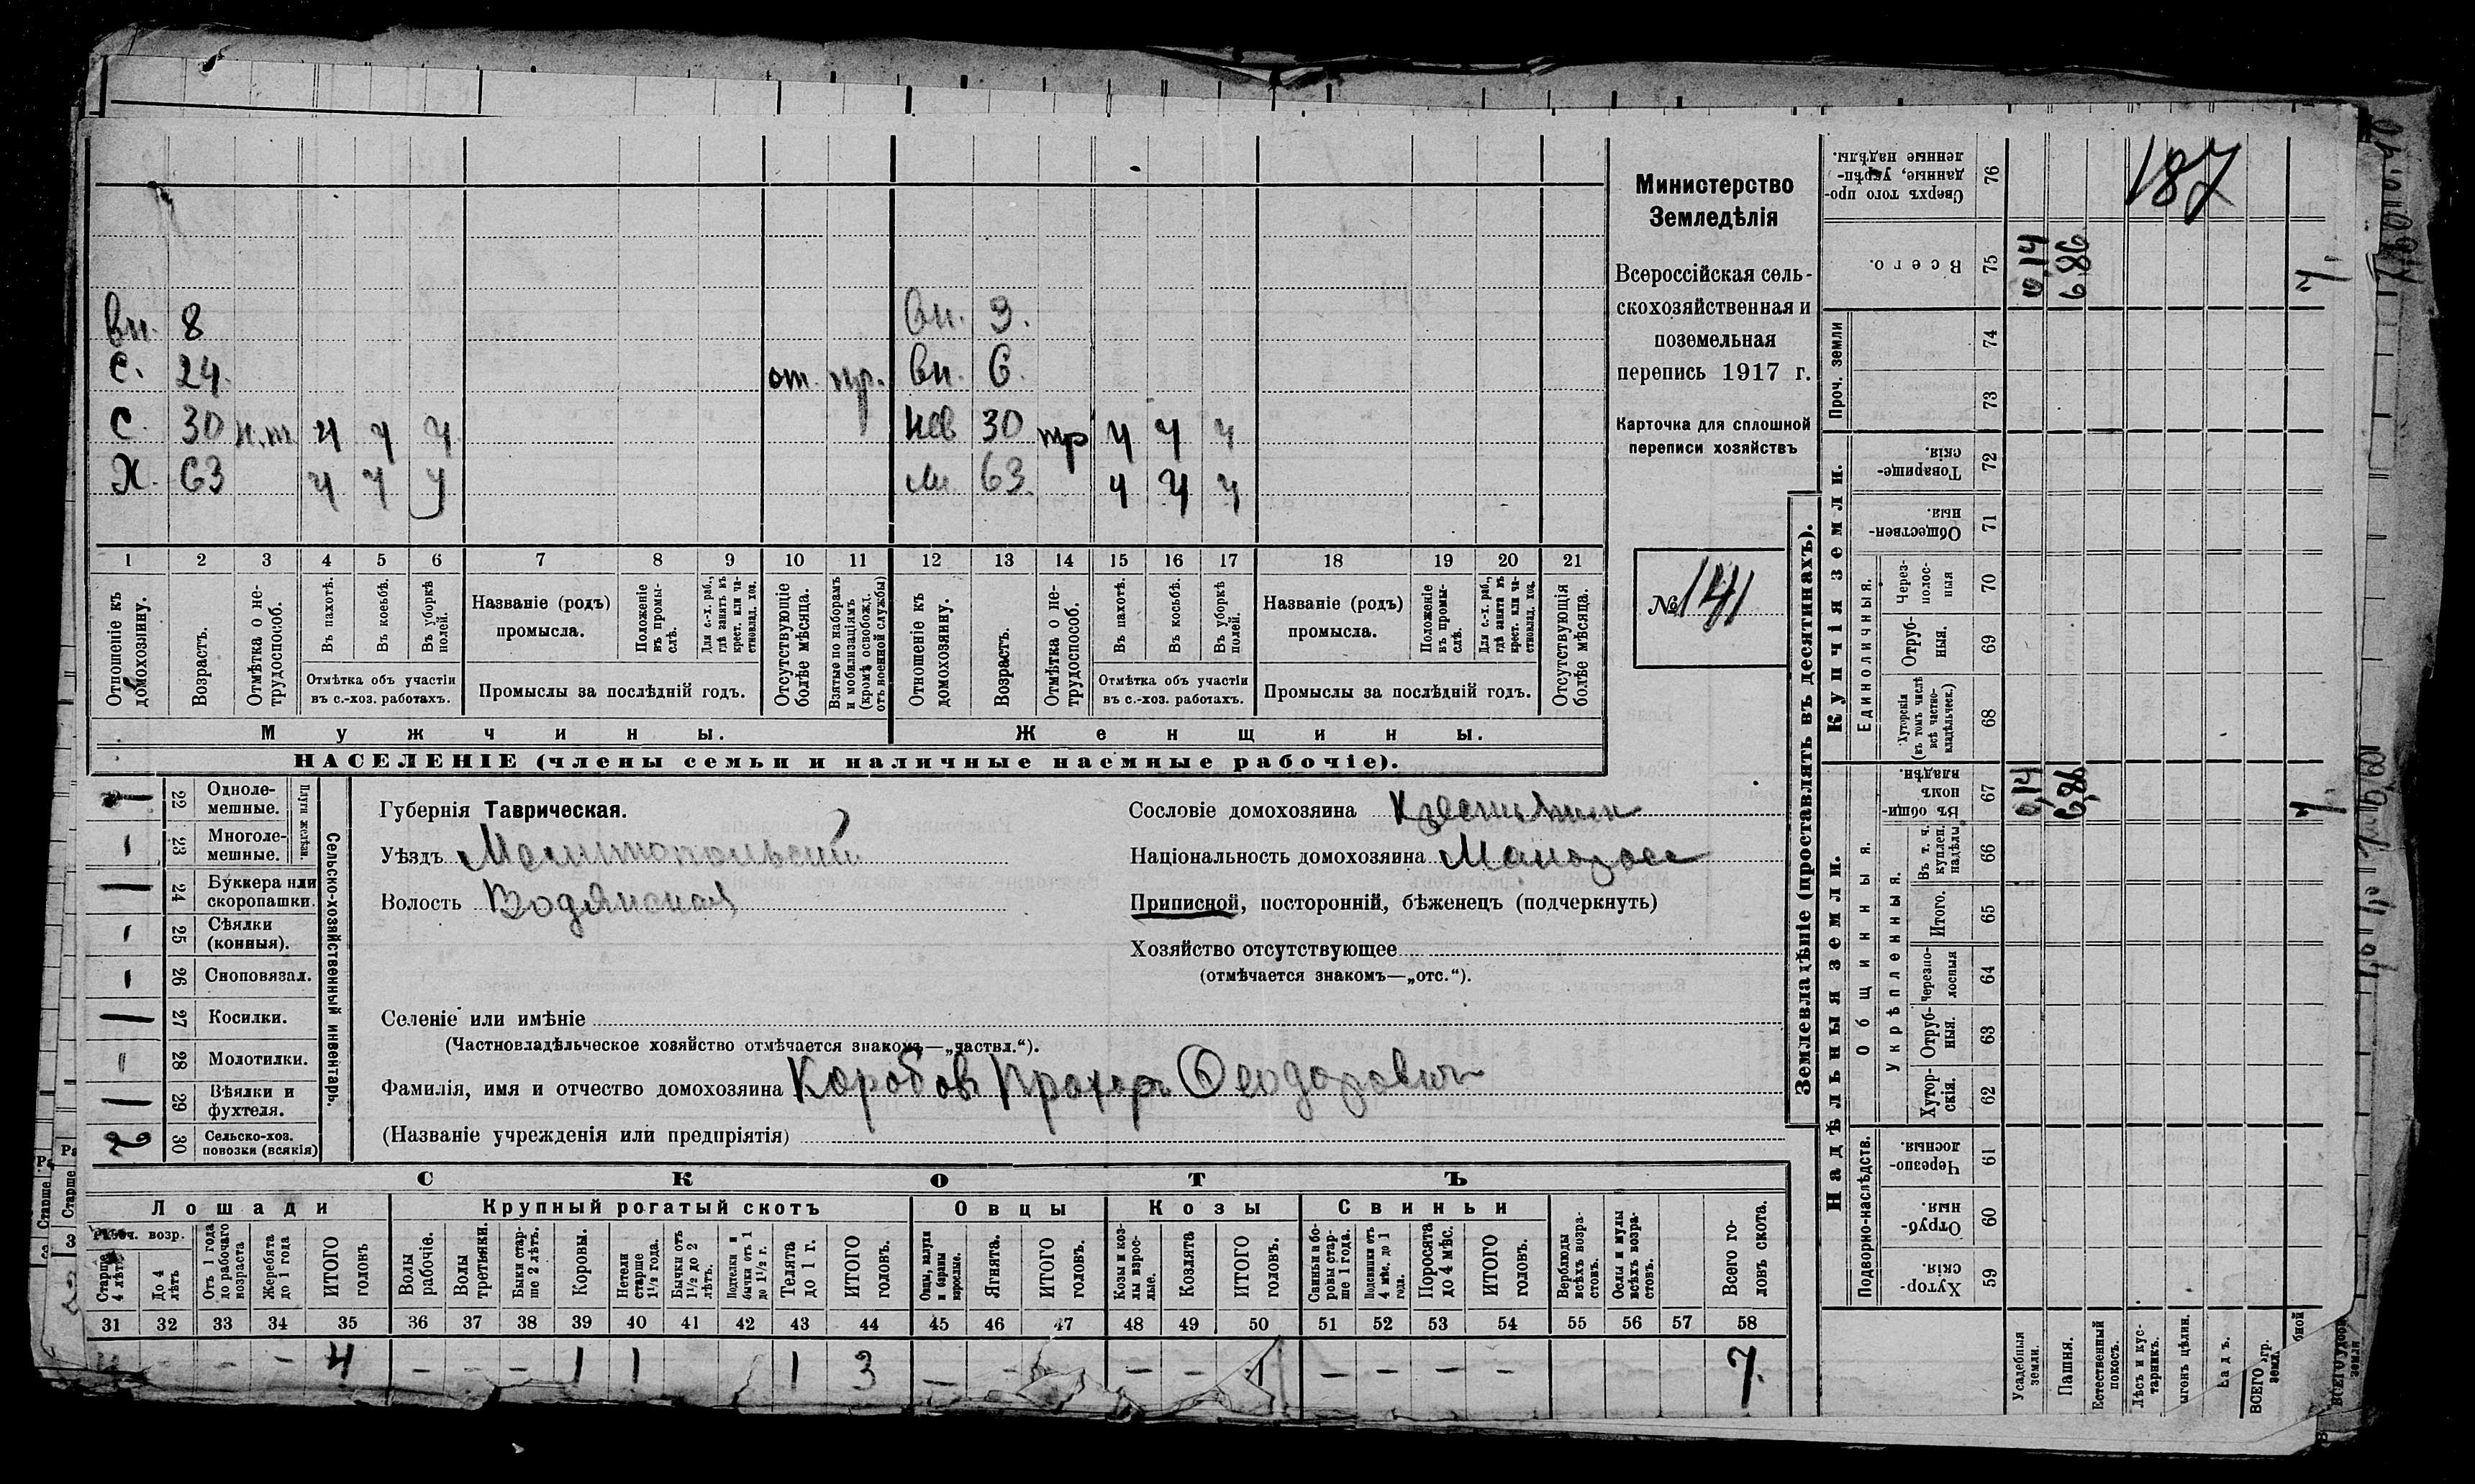 вн. 8 вн. 3.
с. 24. от. пр. вн. 6.
с. 30 н.т ч ч ч нев 30 тр ч ч ч
Х. 63 ч ч ч м. 63. ч ч ч
1 2 3 4 5 6 7 8 9 10 11 12 13 14 15 16 17 18 19 20 21
Отношеніе къ домохозяину.
Возрастъ.
Отмѣтка о не-
трудоспособ.
Въ пахотѣ.
Въ косьбѣ.
Въ уборкѣ
полей.
Отмѣтка объ участіи
въ с.-хоз. работахъ.
Названіе (родъ)
промысла.
Положеніе
въ промы-
слѣ.
Для с.-х. раб.,
гдѣ занятъ въ
крест. или ча-
стновлад. хоз.
Промыслы за послѣдній годъ.
Отсутствующіе
болѣе мѣсяца.
Взятые по наборамъ
и мобилизаціямъ
(кромѣ освобожд.
отъ военной службы)
Отношеніе къ
домохозяину.
Возрастъ.
Отмѣтка о не-
трудоспособ.
Въ пахотѣ.
Въ косьбѣ.
Въ уборкѣ
полей.
Отмѣтка объ участіи
въ с.-хоз. работахъ.
Названіе (родъ)
промысла.
Положеніе
въ промы-
слѣ.
Для с.-х. раб.,
гдѣ занята въ
крест. или ча-
стновлад. хоз.
Промыслы за послѣдній годъ.
Отсутствующія
болѣе мѣсяца.
Мужчины. Женщины.
НАСЕЛЕНІЕ (члены семьи и наличные наемные рабочіе).
Министерство
Земледѣлія
Всероссійская сель-
скохозяйственная и
поземельная
перепись 1917 г.
Карточка для сплошной
переписи хозяйствъ
№ 141
22 Одноле-
мешные.
23 Многоле-
мешные.
Плуги желѣзн.
24 Буккера или
скоропашки.
25 Сѣялки
(конныя).
26 Сноповязал.
27 Косилки.
28 Молотилки.
29 Вѣялки и
фухтеля.
2 30 Сельско-хоз.
повозки (всякія)
Сельско-хозяйственный инвентарь.
Губернія Таврическая.
Уѣздъ Мелитопольский
Волость Водянская
Сословіе домохозяина Крестьянин
Національность домохозяина Малоросс
Приписной, посторонній, бѣженецъ (подчеркнуть)
Хозяйство отсутствующее
(отмѣчается знакомъ—„отс.“).
Селеніе или имѣніе
(Частновладѣльческое хозяйство отмѣчается знакомъ—„частвл.“).
Фамилія, имя и отчество домохозяина Коробов Прохоръ Феодорович
(Названіе учрежденія или предпріятія)
СКОТЪ
Лошади Крупный рогатый скотъ Овцы Козы Свиньи
Рабоч. возр.
Старше
4 лѣтъ
До 4
лѣтъ
Отъ 1 года
до рабочаго
возраста
Жеребята
до 1 года
ИТОГО
головъ
Волы
рабочіе.
Волы
третьяки.
Быки стар-
ше 2 лѣтъ.
Коровы.
Нетели
старше
1½ года.
Бычки отъ
1½ до 2
лѣтъ.
Подтелки и
бычки отъ 1
до 1½ г.
Телята
до 1 г.
ИТОГО
головъ.
Овцы, валухи
и бараны
взрослые.
Ягнята.
ИТОГО
головъ.
Козы и коз-
лы взрос-
лые.
Козлята
ИТОГО
головъ.
Свиньи и бо-
ровы стар-
ше 1 года.
Подсвинки отъ
4 мѣс. до 1
года.
Поросята
до 4 мѣс.
ИТОГО
головъ.
Верблюды
всѣхъ возра-
стовъ.
Ослы и мулы
всѣхъ возра-
стовъ.
Всего го-
ловъ скота.
31 32 33 34 35 36 37 38 39 40 41 42 43 44 45 46 47 48 49 50 51 52 53 54 55 56 57 58
4 – – 4 – – – 1 1 1 3 – – – – – – – – 7.
Землевладѣніе (проставлять въ десятинахъ).
Надѣльныя земли. Купчія земли. Проч. земли
Подворно-наслѣдств. Общинныя. Единоличныя.
Укрѣпленныя.
Сверхъ того про-
данные, укрѣп-
ленные надѣлы. 76
Всего. 75 0,14 6,86 7.
74
73
Товарище-
скія. 72
Обществен-
ныя. 71
Через-
полос-
ныя 70
Отруб-
ныя. 69
Хуторскія
(въ томъ числѣ
всѣ частно-
владѣльческ.) 68
Въ общи-
номъ
владѣн. 67 0,14 6,86 7.
Въ т. ч.
куплен.
надѣлы 66
Итого. 65
Черезпо-
лосныя 64
Отруб-
ныя. 63
Хутор-
скія. 62
Черезпо-
лосныя 61
Отруб-
ныя. 60
Хутор-
скія. 59
Усадебныя
земли.
Пашня.
Естественный
покосъ.
Лѣсъ и кус-
тарникъ.
187